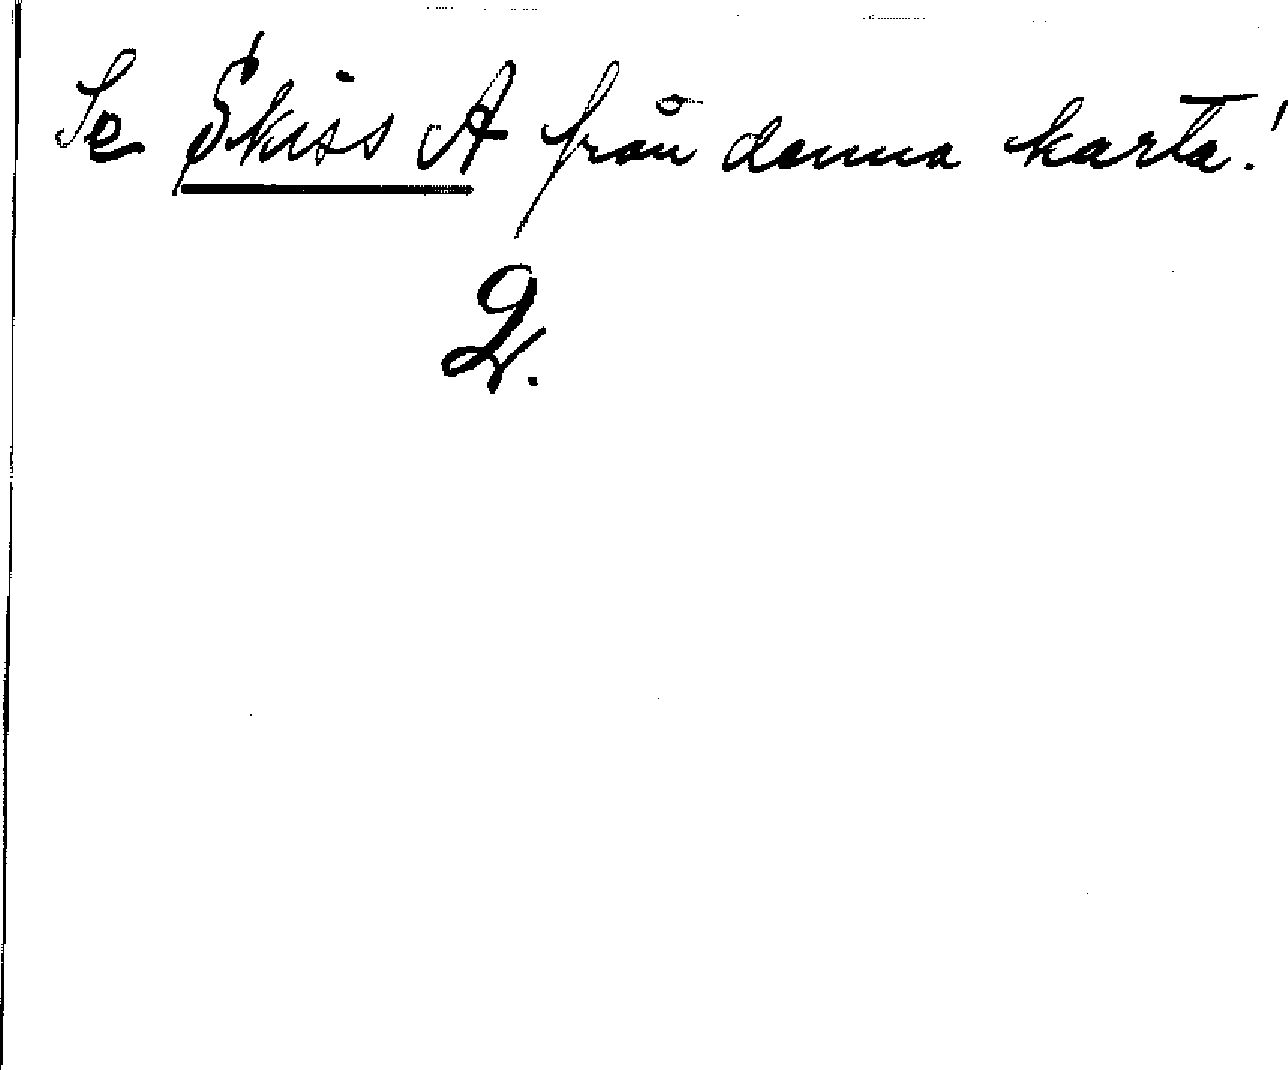 Se Skiss A från denna karta!
2.